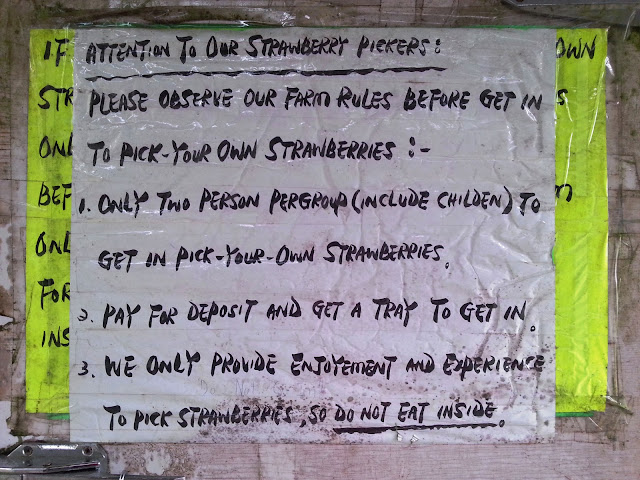 ATTENTION TO OUR STRAWBERRY PICKERS:
PLEASE OBSERVE OUR FARM RULES BEFORE GET IN
TO PICK-YOUR OWN STRAWBERRIES :-
1. ONLY TWO PERSON PERGROUP (INCLUDE CHILDEN) TO
GET IN PICK-YOUR-OWN STRAWBERRIES.
2. PAY FOR DEPOSIT AND GET A TRAY TO GET IN.
3. WE ONLY PROVIDE ENJOYEMENT AND EXPERIENCE
TO PICK STRAWBERRIES, SO DO NOT EAT INSIDE.
IF
OWN
STR
ONL
BEF
ONL
FOR
INS